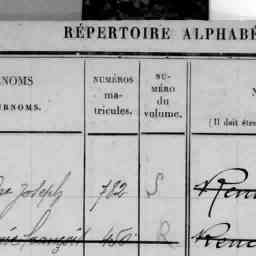 RÉPERTOIRE ALPHABÉ
NOMS
URNOMS.
NUMÉROS
ma-
tricules.
NU-
MÉRO
du
volume.
N
(Il doit être
Joseph 782 S Ren
françois 450 R Ren